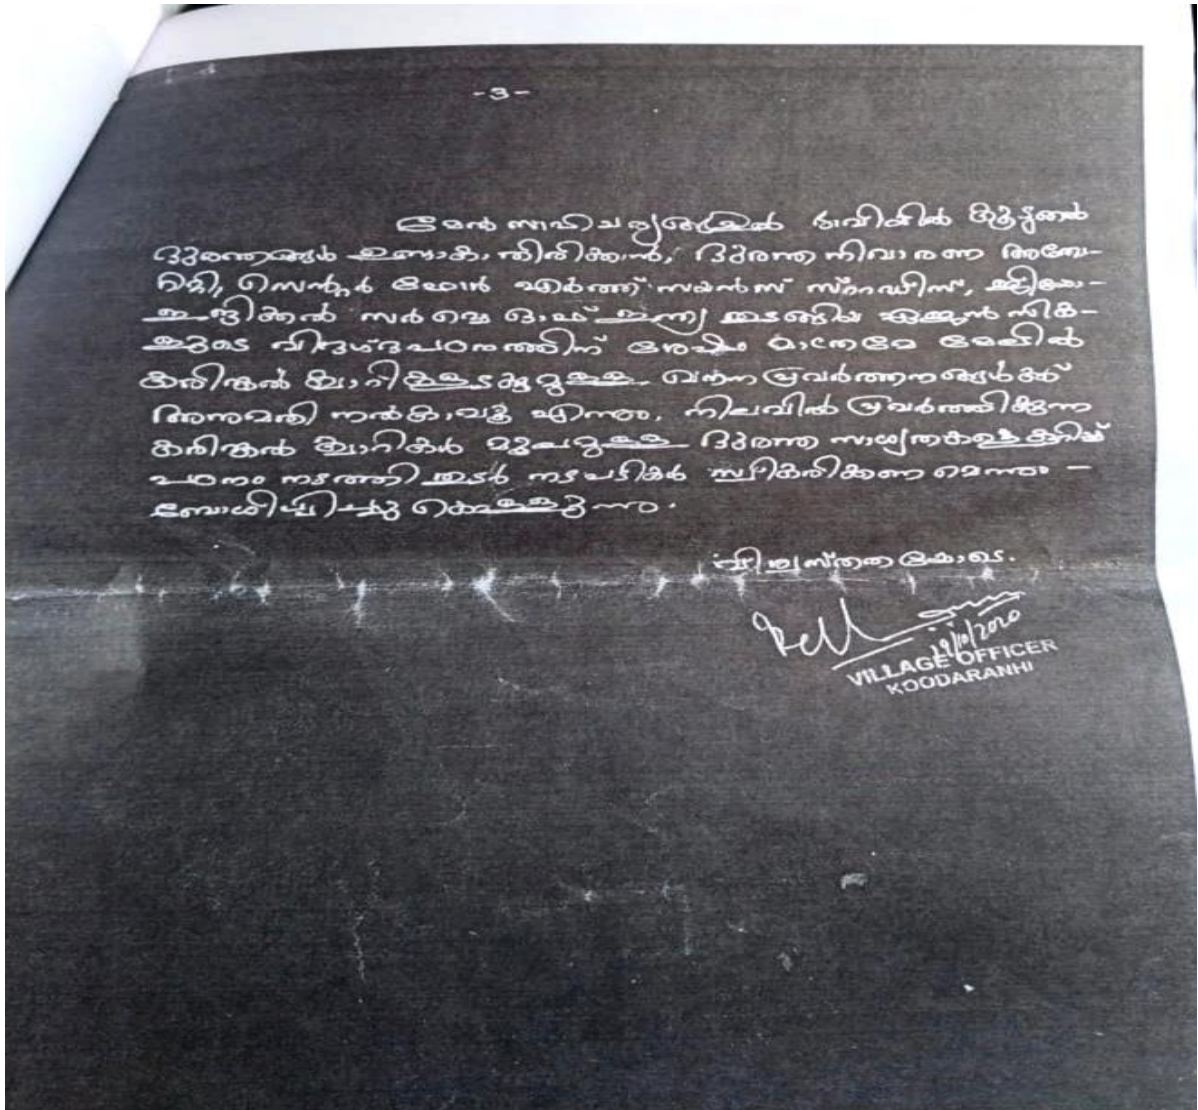 -3-
മേൽ സാഹചര്യങ്ങളിൽ ഭാവിയിൽ കൂടുതൽ
ദുരന്തങ്ങൾ ഉണ്ടാകാതിരിക്കാൻ, ദുരന്ത നിവാരണ അതോ-
റിറ്റി, സെന്റർ ഫോർ എർത്ത് സയൻസ് സ്റ്റഡീസ്, ജിയോ-
ളജിക്കൽ സർവ്വെ ഓഫ് ഇന്ത്യ തുടങ്ങിയ ഏജൻസിക-
ളുടെ വിദഗ്ദപഠനത്തിന് ശേഷം മാത്രമേ മേലിൽ
കരിങ്കൽ ക്വാറികളടക്കമുള്ള ഖനന പ്രവർത്തനങ്ങൾക്ക്
അനുമതി നൽകാവൂ എന്നും, നിലവിൽ പ്രവർത്തിക്കുന്ന
കരിങ്കൽ ക്വാറികൾ മൂലമുള്ള ദുരന്ത സാധ്യതകളെ കുറിച്ച്
പഠനം നടത്തി തുടർ നടപടികൾ സ്വീകരിക്കണമെന്നും -
ബോധിപ്പിച്ചു കൊള്ളുന്നു.
വിശ്വസ്തതയോടെ.
19/10/2020
VILLAGE OFFICER
KOODARANHI